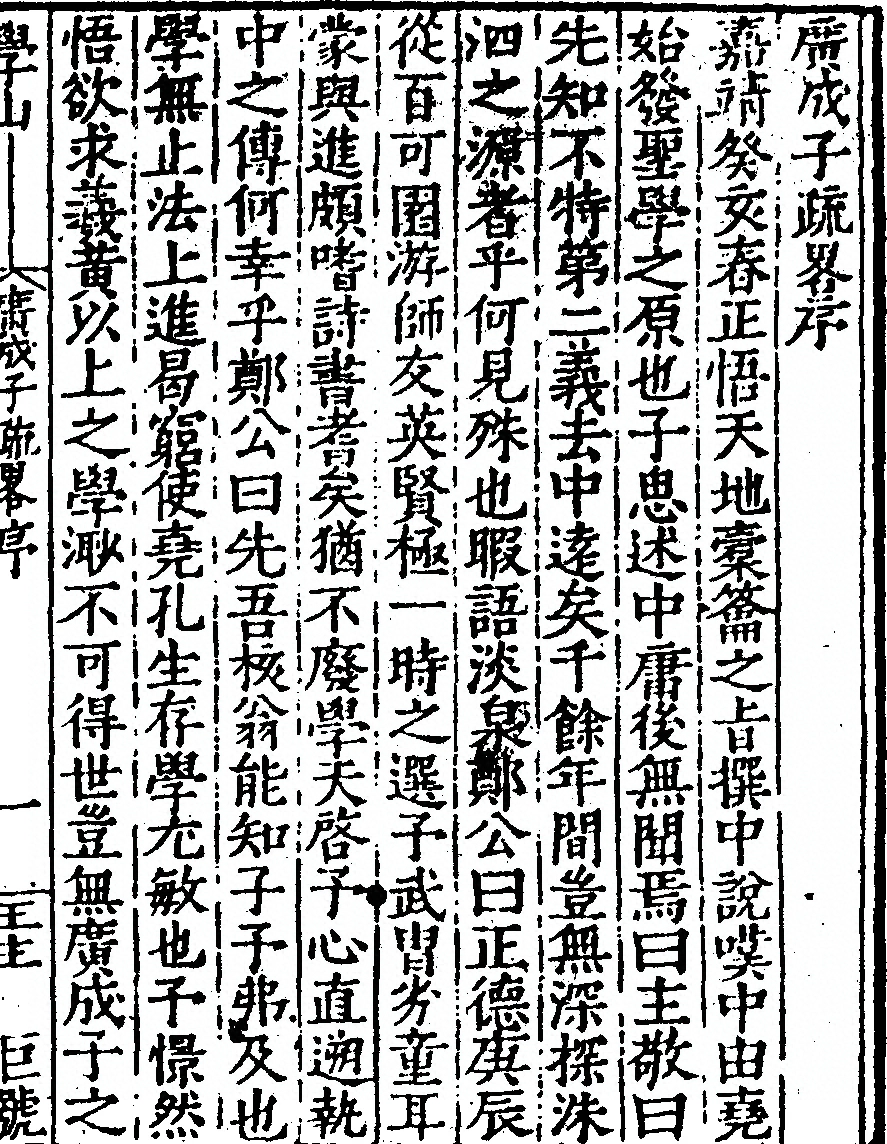 廣成子疏畧序
嘉靖癸亥春正悟天地槖籥之旨撰中說嘆中由堯
始發聖學之原也子思述中庸後無聞焉曰主敬曰
先知不特第二義去中逺矣千餘年間豈無深探洙
泗之源者乎何見殊也暇語淡泉鄭公曰正德庚辰
從百可園游師友英賢極一時之選予武胄劣童耳
蒙與進頗嗜詩書耆矣猶不廢學天啓予心直遡執
中之傳何幸乎鄭公曰先吾核翁能知子予弗及也
學無止法上進曷窮使堯孔生存學尤敏也予憬然
悟欲求羲黃以上之學渺不可得世豈無廣成子之
學山 廣成子疏畧序 一 王生 巨號